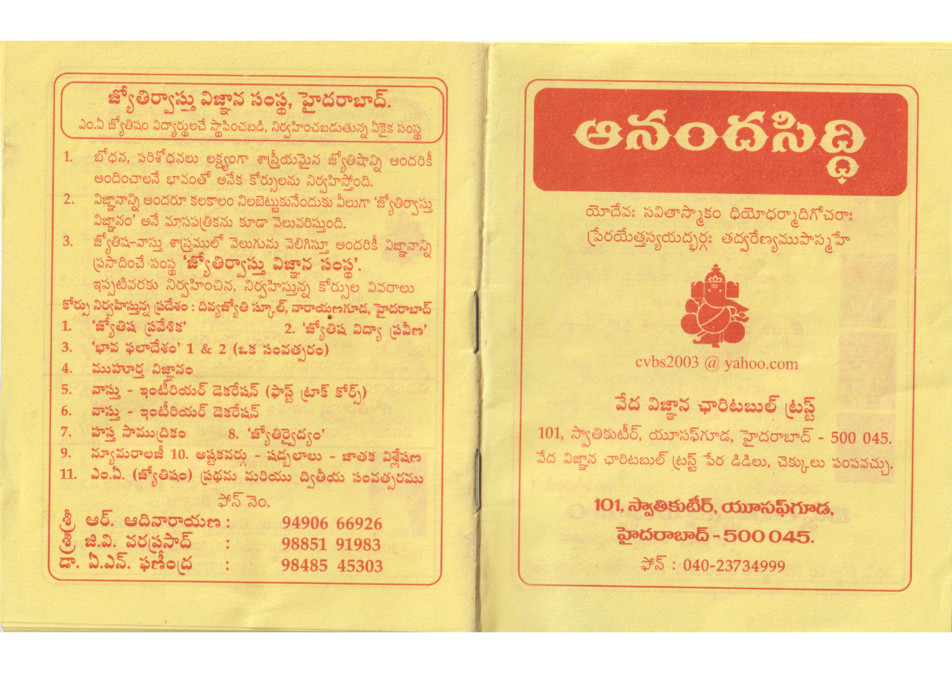 జ్యోతిర్వాస్తు విజ్ఞాన సంస్థ, హైదరాబాద్.
ఎం.ఏ జ్యోతిషం విద్యార్థులచే స్థాపించబడి, నిర్వహించబడుతున్న ఏకైక సంస్థ
1. బోధన, పరిశోధనలు లక్ష్యంగా శాస్త్రీయమైన జ్యోతిషాన్ని అందరికీ
అందించాలనే భావంతో అనేక కోర్సులను నిర్వహిస్తోంది.
2. విజ్ఞానాన్ని అందరూ కలకాలం నిలబెట్టుకునేందుకు వీలుగా 'జ్యోతిర్వాస్తు
విజ్ఞానం' అనే మాసపత్రికను కూడా వెలువరిస్తుంది.
3. జ్యోతిష-వాస్తు శాస్త్రములో వెలుగును వెలిగిస్తూ అందరికీ విజ్ఞానాన్ని
ప్రసాదించే సంస్థ 'జ్యోతిర్వాస్తు విజ్ఞాన సంస్థ'.
ఇప్పటివరకు నిర్వహించిన, నిర్వహిస్తున్న కోర్సుల వివరాలు
కోర్సు నిర్వహిస్తున్న ప్రదేశం : దివ్యజ్యోతి స్కూల్, నారాయణగూడ, హైదరాబాద్
1. 'జ్యోతిష ప్రవేశిక' 2. 'జ్యోతిష విద్యా ప్రవీణ'
3. 'భావ ఫలాదేశం' 1 & 2 (ఒక సంవత్సరం)
4. ముహూర్త విజ్ఞానం
5. వాస్తు - ఇంటీరియర్ డెకరేషన్ (ఫాస్ట్ ట్రాక్ కోర్స్)
6. వాస్తు - ఇంటీరియర్ డెకరేషన్
7. హస్త సాముద్రికం 8. 'జ్యోతిర్వైద్యం'
9. న్యూమరాలజీ 10. అష్టకవర్గు - షడ్బలాలు - జాతక విశ్లేషణ
11. ఎం.ఏ. (జ్యోతిషం) ప్రథమ మరియు ద్వితీయ సంవత్సరము
ఫోన్ నెం.
శ్రీ ఆర్. ఆదినారాయణ : 94906 66926
శ్రీ జి.వి. వరప్రసాద్ : 98851 91983
డా. ఏ.ఎన్. ఫణీంద్ర : 98485 45303
ఆనందసిద్ధి
యోదేవః సవితాస్మాకం ధియోధర్మాదిగోచరాః
ప్రేరయేత్తస్యయద్భర్గః తద్వరేణ్యముపాస్మహే
cvbs2003 @ yahoo.com
వేద విజ్ఞాన ఛారిటబుల్ ట్రస్ట్
101, స్వాతికుటీర్, యూసఫ్‌గూడ, హైదరాబాద్ - 500 045.
వేద విజ్ఞాన ఛారిటబుల్ ట్రస్ట్ పేర డిడిలు, చెక్కులు పంపవచ్చు.
101, స్వాతికుటీర్, యూసఫ్‌గూడ,
హైదరాబాద్ - 500 045.
ఫోన్ : 040-23734999